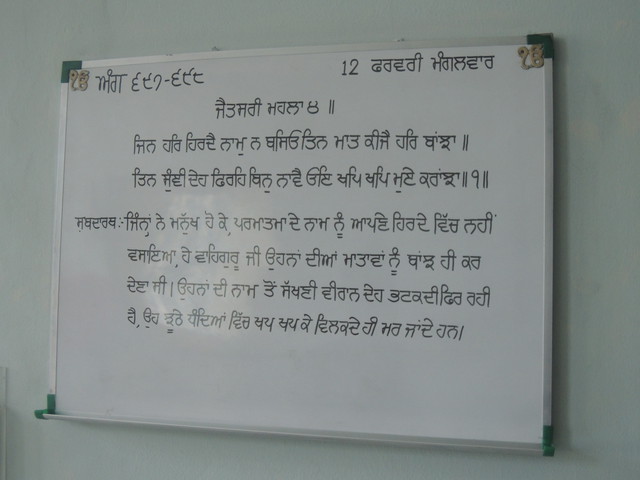 ੴ ਅੰਗ ੬੯੭-੬੯੮ 12 ਫਰਵਰੀ ਮੰਗਲਵਾਰ ੴ
ਜੈਤਸਰੀ ਮਹਲਾ ੪ ॥
ਜਿਨ ਹਰਿ ਹਿਰਦੈ ਨਾਮੁ ਨ ਬਸਿਓ ਤਿਨ ਮਾਤ ਕੀਜੈ ਹਰਿ ਬਾਂਝਾ ॥
ਤਿਨ ਸੁੰਞੀ ਦੇਹ ਫਿਰਹਿ ਬਿਨੁ ਨਾਵੈ ਓਇ ਖਪਿ ਖਪਿ ਮੁਏ ਕਰਾਂਝਾ ॥੧॥
ਸ਼ਬਦਾਰਥ:-ਜਿੰਨ੍ਹਾਂ ਨੇ ਮਨੁੱਖ ਹੋ ਕੇ, ਪਰਮਾਤਮਾ ਦੇ ਨਾਮ ਨੂੰ ਆਪਣੇ ਹਿਰਦੇ ਵਿੱਚ ਨਹੀਂ
ਵਸਾਇਆ, ਹੇ ਵਾਹਿਗੁਰੂ ਜੀ ਉਹਨਾਂ ਦੀਆਂ ਮਾਤਾਵਾਂ ਨੂੰ ਬਾਂਝ ਹੀ ਕਰ
ਦੇਣਾ ਸੀ। ਉਹਨਾਂ ਦੀ ਨਾਮ ਤੋਂ ਸੱਖਣੀ ਵੀਰਾਨ ਦੇਹ ਭਟਕਦੀ ਫਿਰ ਰਹੀ
ਹੈ, ਉਹ ਝੂਠੇ ਧੰਦਿਆਂ ਵਿੱਚ ਖਪ ਖਪ ਕੇ ਵਿਲਕਦੇ ਹੀ ਮਰ ਜਾਂਦੇ ਹਨ।